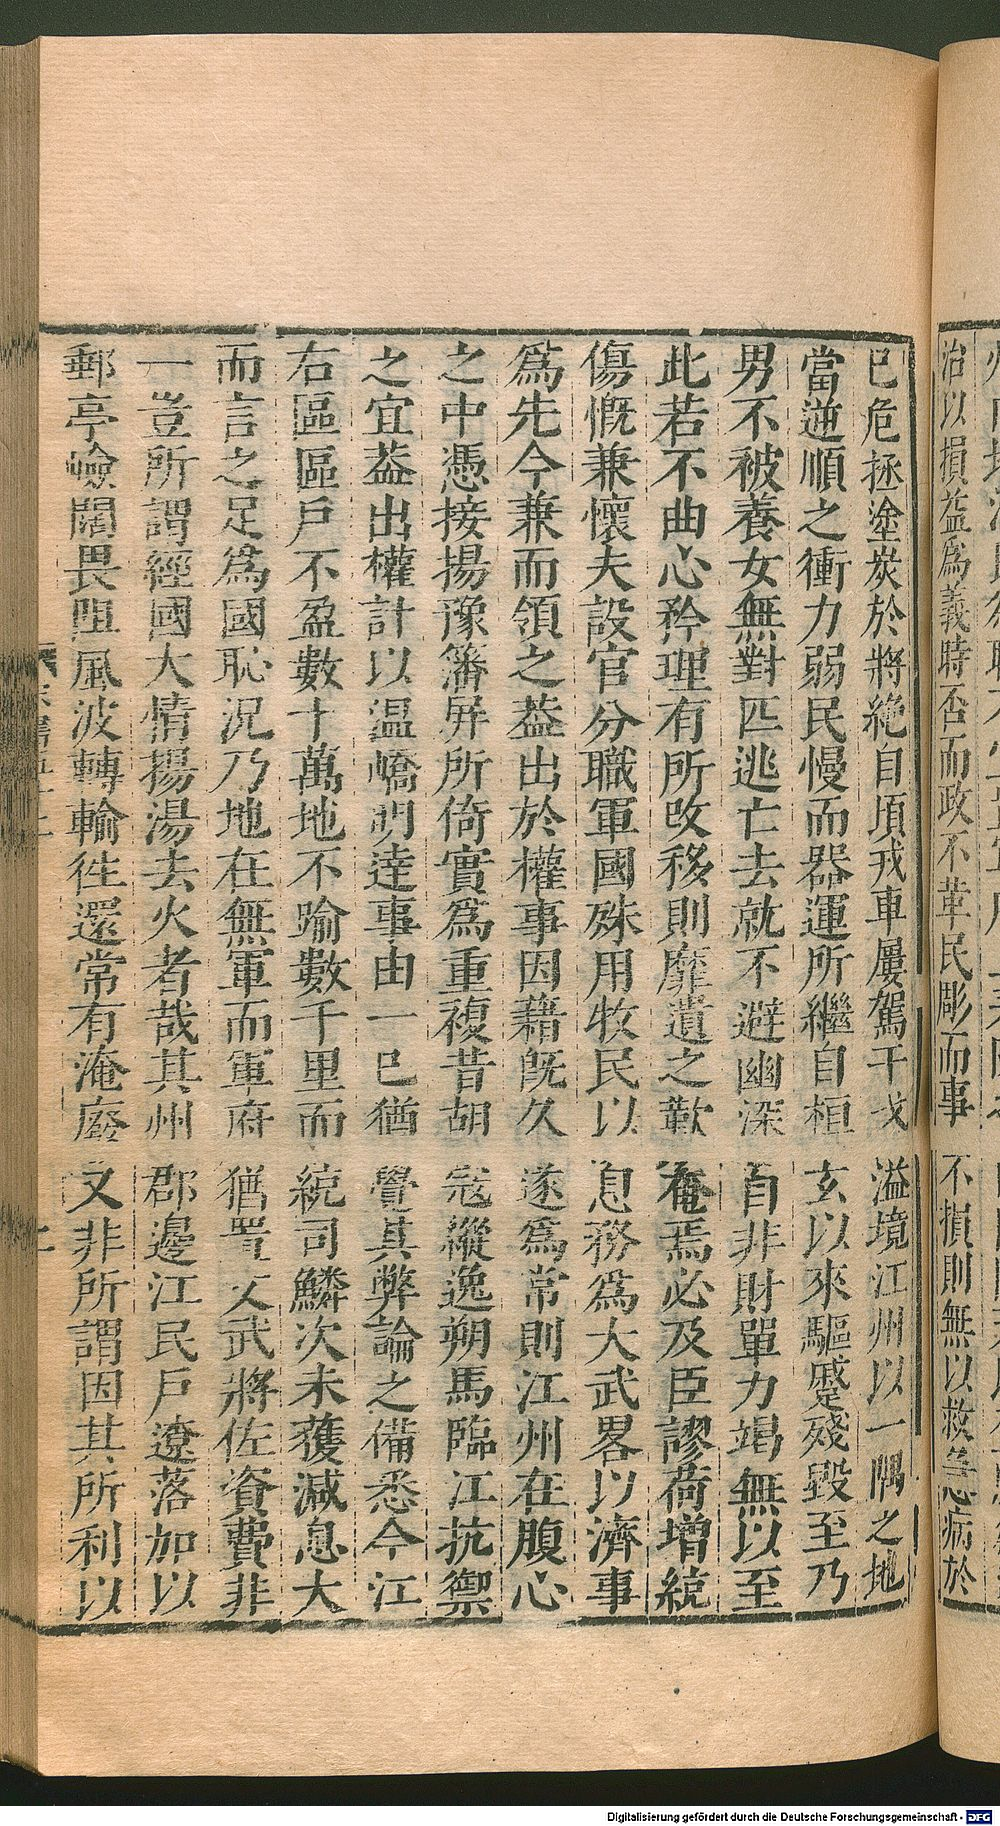 治以損益爲義時否而政不革民彫而事不損則無以救急病於
已危拯塗炭於將絶自頃戎車屢駕干戈溢境江州以一隅之地
當逆順之衝力弱民慢而器運所繼自桓玄以來驅蹙殘毀至乃
男不被養女無對匹逃亡去就不避幽深自非財單力竭無以至
此若不曲心矜理有所改移則靡遺之歎奄焉必及臣謬荷增統
傷慨兼懷夫設官分職軍國殊用牧民以息務爲大武畧以濟事
爲先今兼而領之葢出於權事因藉旣久遂爲常則江州在腹心
之中憑接揚豫籓屏所倚實爲重複昔胡寇縱逸朔馬臨江抗禦
之宜葢出權計以温嶠明達事由一已猶覺其弊論之備悉今江
右區區戶不盈數十萬地不踰數千里而統司鱗次未獲減息大
而言之足爲國恥況乃地在無軍而軍府猶置文武將佐資費非
一豈所謂經國大情揚湯去火者哉其州郡邊江民戶遼落加以
郵亭嶮闊畏阻風波轉輸徃還常有淹廢又非所謂因其所利以
Digitalisierung gefördert durch die Deutsche Forschungsgemeinschaft - DFG